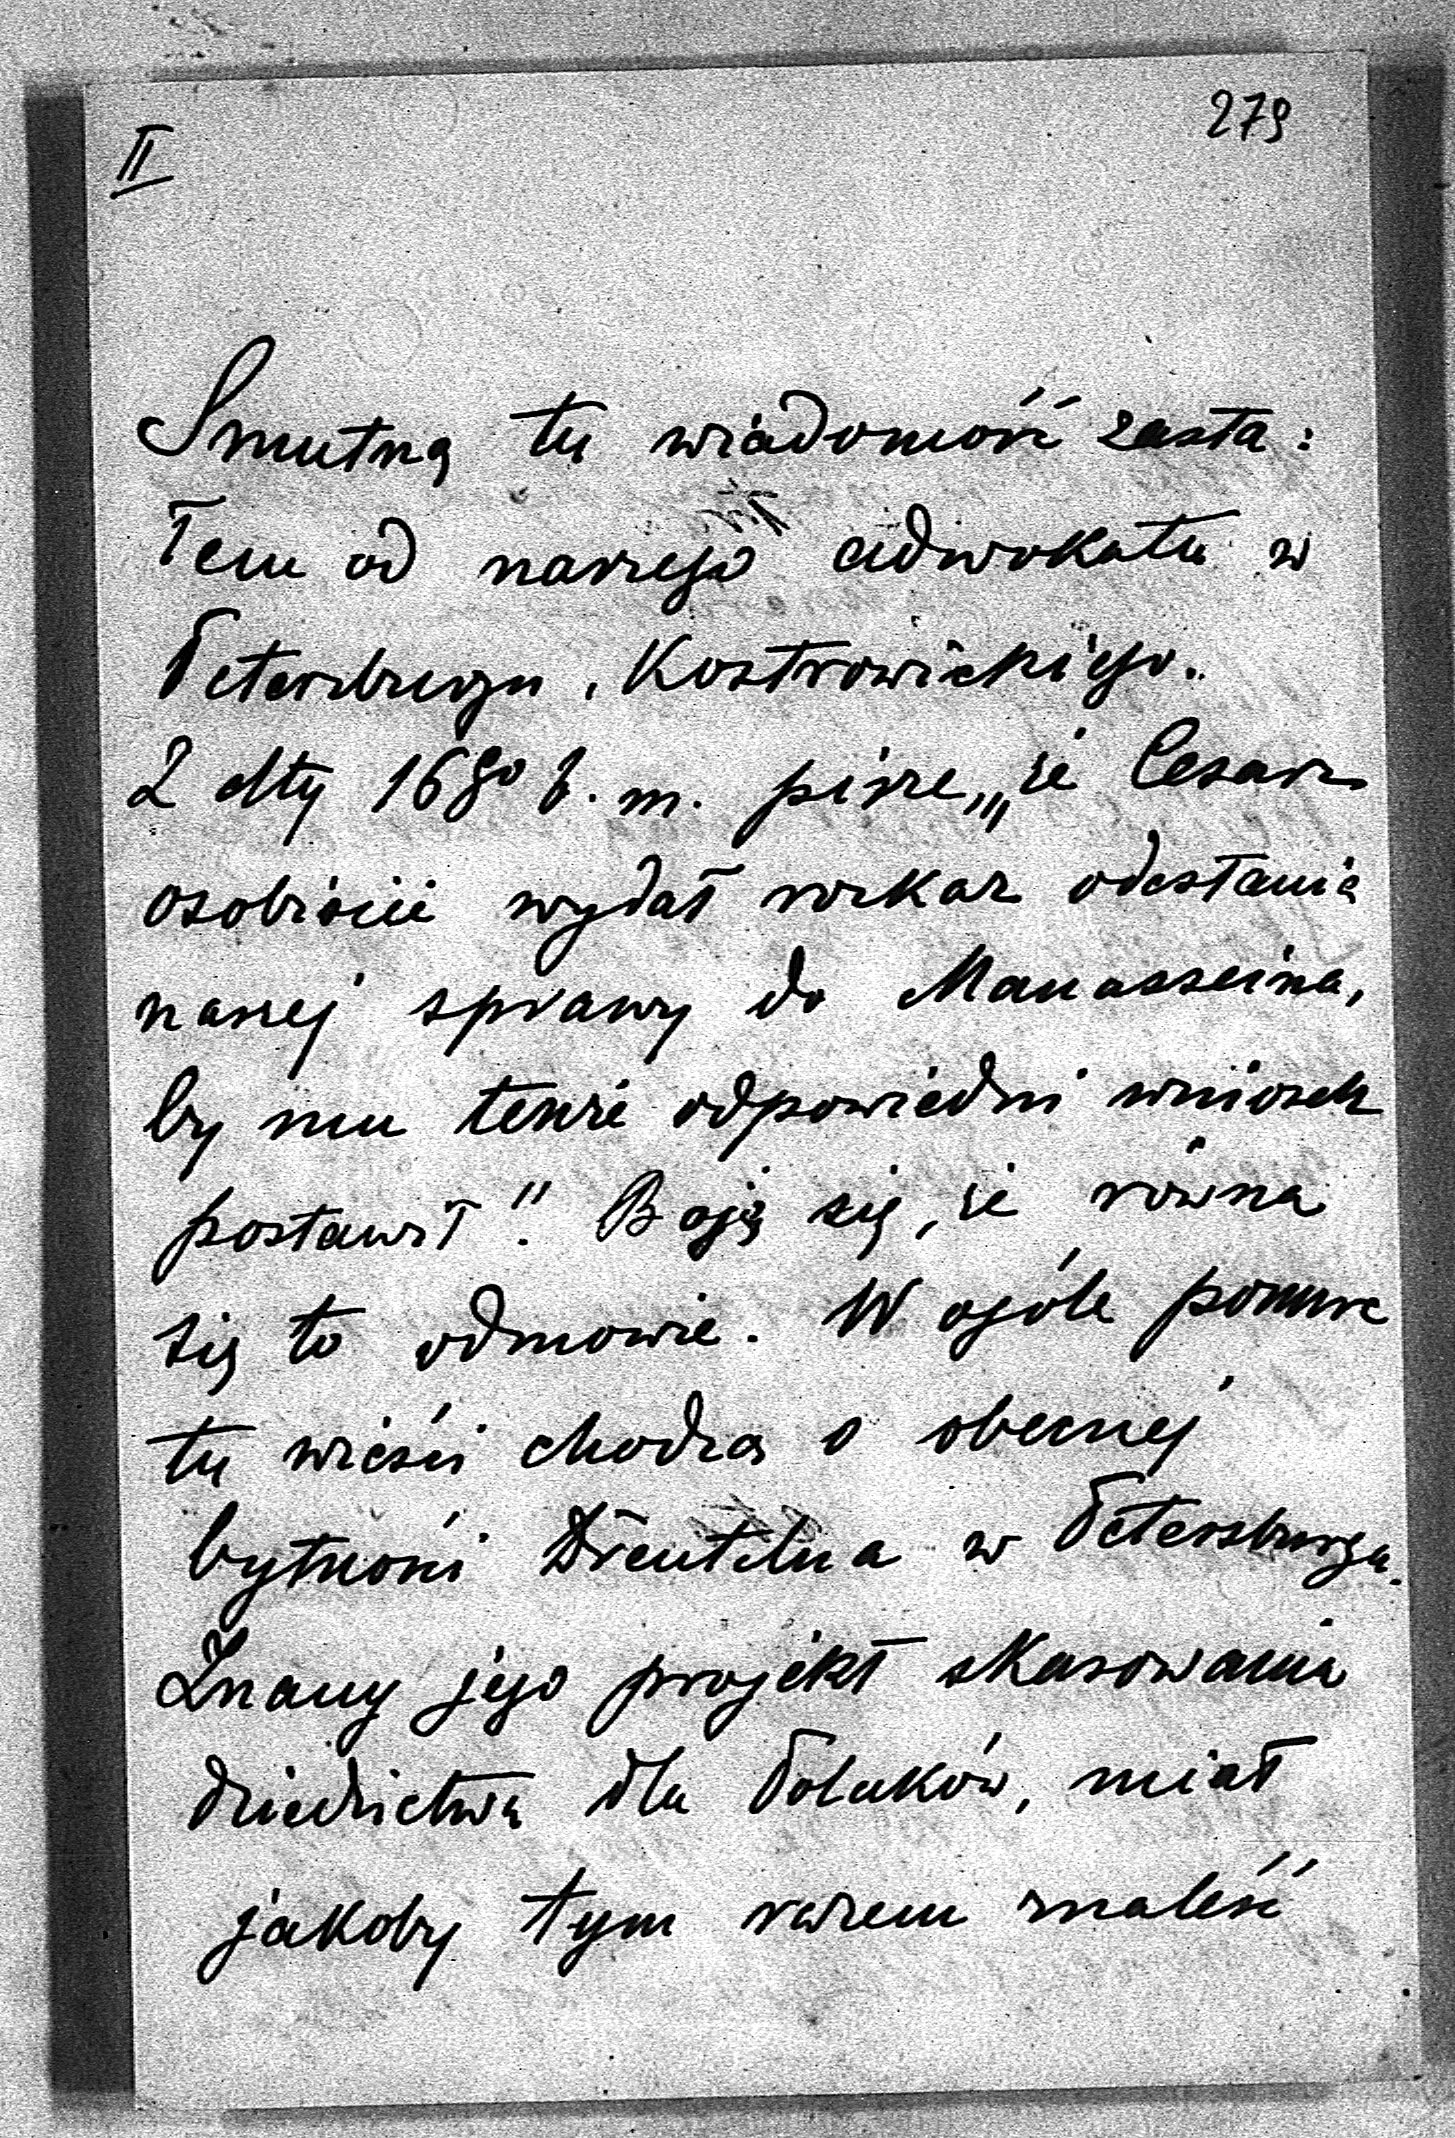 279
II
Smutną tu wiadomość zasta:
łem od naszego adwokata w
Petersburgu, Kostrowickiego.
Z dty 16go b. m. pisze, „że Cesarz
osobiście wydał rozkaz odesłania
naszej sprawy do Manasseina,
by mu tenże odpowiedni wniosek
postawił". Boję się, że równa
się to odmowie. W ogóle ponure
tu wieści chodzą o obecnej
bytności Drentelna w Petersburgu.
Znany jego projekt skasowania
dziedzictwa dla Polaków, miał
jakoby tym razem znaleść